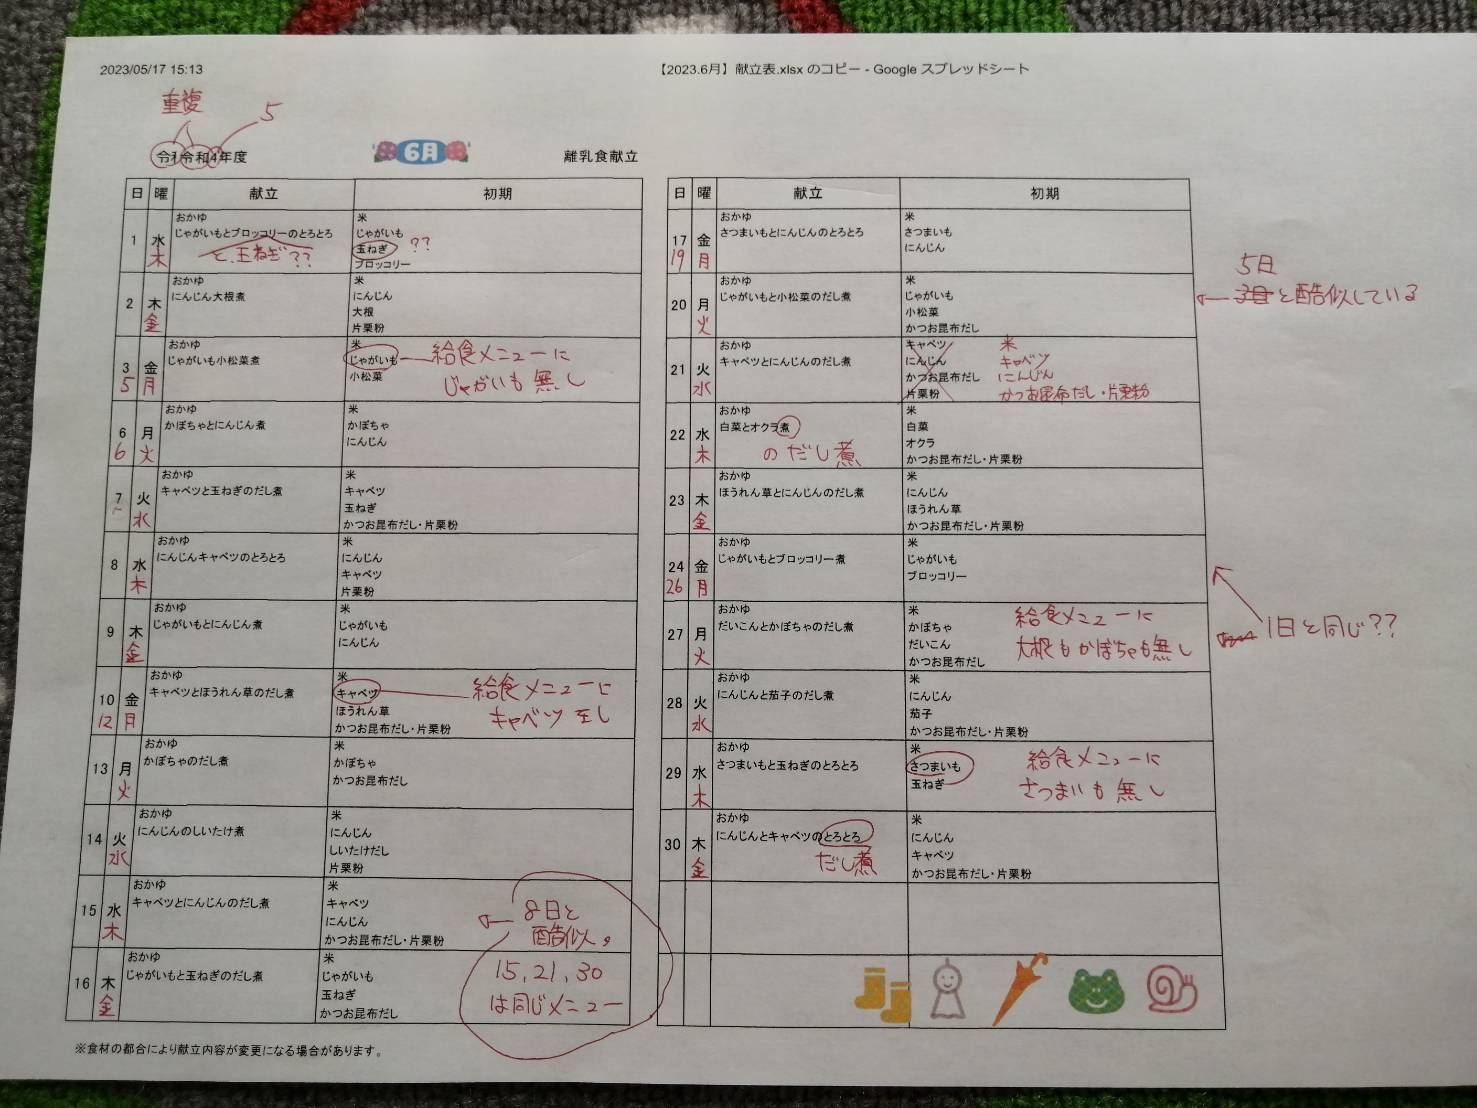 2023/05/17 15:13
【2023.6月】献立表.xlsx のコピー - Google スプレッドシート
重複
5
令和令和4年度
6月
離乳食献立
日 曜 献立 初期
1 水 木
おかゆ
じゃがいもとブロッコリーのとろとろ
と、玉ねぎ??
米
じゃがいも
玉ねぎ ??
ブロッコリー
2 木 金
おかゆ
にんじん大根煮
米
にんじん
大根
片栗粉
3 5 金 月
おかゆ
じゃがいも小松菜煮
米
じゃがいも
小松菜
給食メニューに
じゃがいも無し
6 6 月 火
おかゆ
かぼちゃとにんじん煮
米
かぼちゃ
にんじん
7 火 水
おかゆ
キャベツと玉ねぎのだし煮
米
キャベツ
玉ねぎ
かつお昆布だし・片栗粉
8 水 木
おかゆ
にんじんキャベツのとろとろ
米
にんじん
キャベツ
片栗粉
9 木 金
おかゆ
じゃがいもとにんじん煮
米
じゃがいも
にんじん
10 12 金 月
おかゆ
キャベツとほうれん草のだし煮
米
キャベツ
ほうれん草
かつお昆布だし・片栗粉
給食メニューに
キャベツ無し
13 月 火
おかゆ
かぼちゃのだし煮
米
かぼちゃ
かつお昆布だし
14 火 水
おかゆ
にんじんのしいたけ煮
米
にんじん
しいたけだし
片栗粉
15 水 木
おかゆ
キャベツとにんじんのだし煮
米
キャベツ
にんじん
かつお昆布だし・片栗粉
8日と
酷似。
16 木 金
おかゆ
じゃがいもと玉ねぎのだし煮
米
じゃがいも
玉ねぎ
かつお昆布だし
15,21,30
は同じメニュー
※食材の都合により献立内容が変更になる場合があります。
日 曜 献立 初期
17 19 金 月
おかゆ
さつまいもとにんじんのとろとろ
米
さつまいも
にんじん
20 月 火
おかゆ
じゃがいもと小松菜のだし煮
米
じゃがいも
小松菜
かつお昆布だし
5日
と酷似している
21 火 水
おかゆ
キャベツとにんじんのだし煮
キャベツ
にんじん
かつお昆布だし
片栗粉
米
キャベツ
にんじん
かつお昆布だし・片栗粉
22 水 木
おかゆ
白菜とオクラ煮
のだし煮
米
白菜
オクラ
かつお昆布だし・片栗粉
23 木 金
おかゆ
ほうれん草とにんじんのだし煮
米
にんじん
ほうれん草
かつお昆布だし・片栗粉
24 26 金 月
おかゆ
じゃがいもとブロッコリー煮
米
じゃがいも
ブロッコリー
1日と同じ??
27 月 火
おかゆ
だいこんとかぼちゃのだし煮
米
かぼちゃ
だいこん
かつお昆布だし
給食メニューに
大根もかぼちゃも無し
28 火 水
おかゆ
にんじんと茄子のだし煮
米
にんじん
茄子
かつお昆布だし・片栗粉
29 水 木
おかゆ
さつまいもと玉ねぎのとろとろ
米
さつまいも
玉ねぎ
給食メニューに
さつまいも無し
30 木 金
おかゆ
にんじんとキャベツのとろとろ
だし煮
米
にんじん
キャベツ
かつお昆布だし・片栗粉